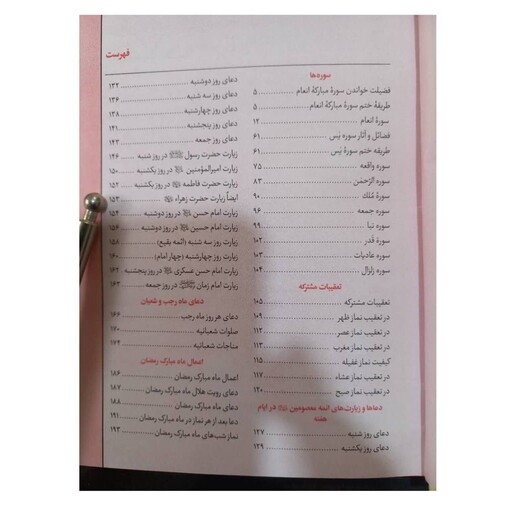 فهرست
سوره‌ها
فضیلت خواندن سورهٔ مبارکهٔ انعام ۵
طریقهٔ ختم سورهٔ مبارکهٔ انعام ۵
سورهٔ انعام ۱۲
فضائل و آثار سوره یٰس ۶۱
طریقه ختم سورهٔ یٰس ۶۱
سوره واقعه ۷۵
سوره الرَّحمٰن ۸۳
سورهٔ مُلک ۹۰
سوره جمعه ۹۶
سوره نبأ ۹۹
سوره قَدر ۱۰۲
سوره عادیات ۱۰۳
سوره زلزال ۱۰۴
تعقیبات مشترکه
تعقیبات مشترکه ۱۰۵
در تعقیب نماز ظهر ۱۰۹
در تعقیب نماز عصر ۱۱۲
در تعقیب نماز مغرب ۱۱۳
کیفیت نماز غفیله ۱۱۵
در تعقیب نماز عشاء ۱۱۷
در تعقیب نماز صبح ۱۲۰
دعاها و زیارت‌های ائمه معصومین در ایام هفته
دعای روز شنبه ۱۲۷
دعای روز یکشنبه ۱۲۹
دعای روز دوشنبه ۱۳۲
دعای روز سه شنبه ۱۳۶
دعای روز چهارشنبه ۱۳۸
دعای روز پنجشنبه ۱۴۱
دعای روز جمعه ۱۴۳
زیارت حضرت رسول در روز شنبه ۱۴۶
زیارت امیرالمؤمنین در روز یکشنبه ۱۵۰
زیارت حضرت فاطمه در روز یکشنبه ۱۵۲
ایضاً زیارت حضرت زهراء ۱۵۳
زیارت امام حسن در روز دوشنبه ۱۵۴
زیارت امام حسین در روز دوشنبه ۱۵۶
زیارت روز سه شنبه (ائمه بقیع) ۱۵۸
زیارت روز چهارشنبه (چهار امام) ۱۶۰
زیارت امام حسن عسکری در روز پنجشنبه ۱۶۲
زیارت امام زمان در روز جمعه ۱۶۳
دعای ماه رجب و شعبان
دعای هر روز ماه رجب ۱۶۶
صلوات شعبانیه ۱۷۰
مناجات شعبانیه ۱۷۴
اعمال ماه مبارک رمضان
اعمال ماه مبارک رمضان ۱۸۶
دعای رویت هلال ماه مبارک رمضان ۱۸۷
دعای ماه مبارک رمضان ۱۸۸
دعا بعد از هر نماز در ماه مبارک رمضان ۱۹۱
نماز شب‌های ماه مبارک رمضان ۱۹۳